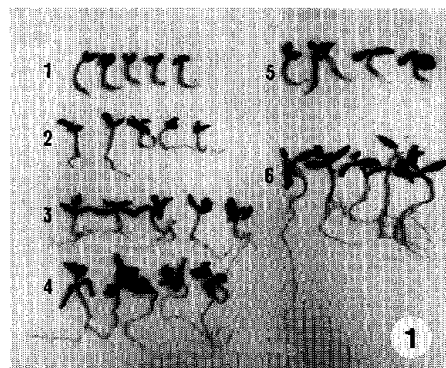 1
2
3
4
5
6
1